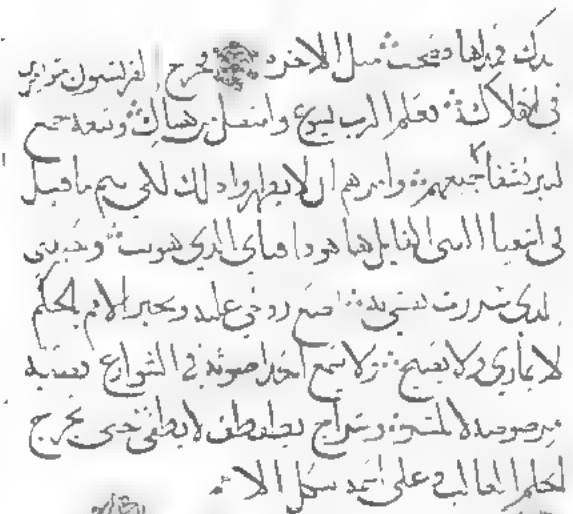 يدك فمدها فصحت مثل الاخرى فخرج الفرنسيون
في اهلاكه فعلم الرب يسوع وانتقل من هناك وتبعه جمع
كثير فشفا جميعهم وامرهم ان لا يظهروا ذلك لكي يتم ما قيل
في اشعيا النبي القايل ها هو ذا فتاي الذي هويت وحبيبي
الذي سررت نفسي به اضع روحي عليه ويخبر الامم بالحكم
لا يماري ولا يصيح ولا يسمع احد صوته في الشوارع قصبة
مرضوضة لا وسراج يطفطف لا يطفى حتى يخرج
الحكم الغالب وعلى اسمه تتكل الامم